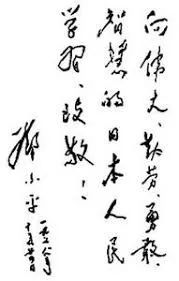 向伟大、勤劳、勇敢、
智慧的日本人民
学习、致敬！
鄧小平
一九七八年
十月廿四日